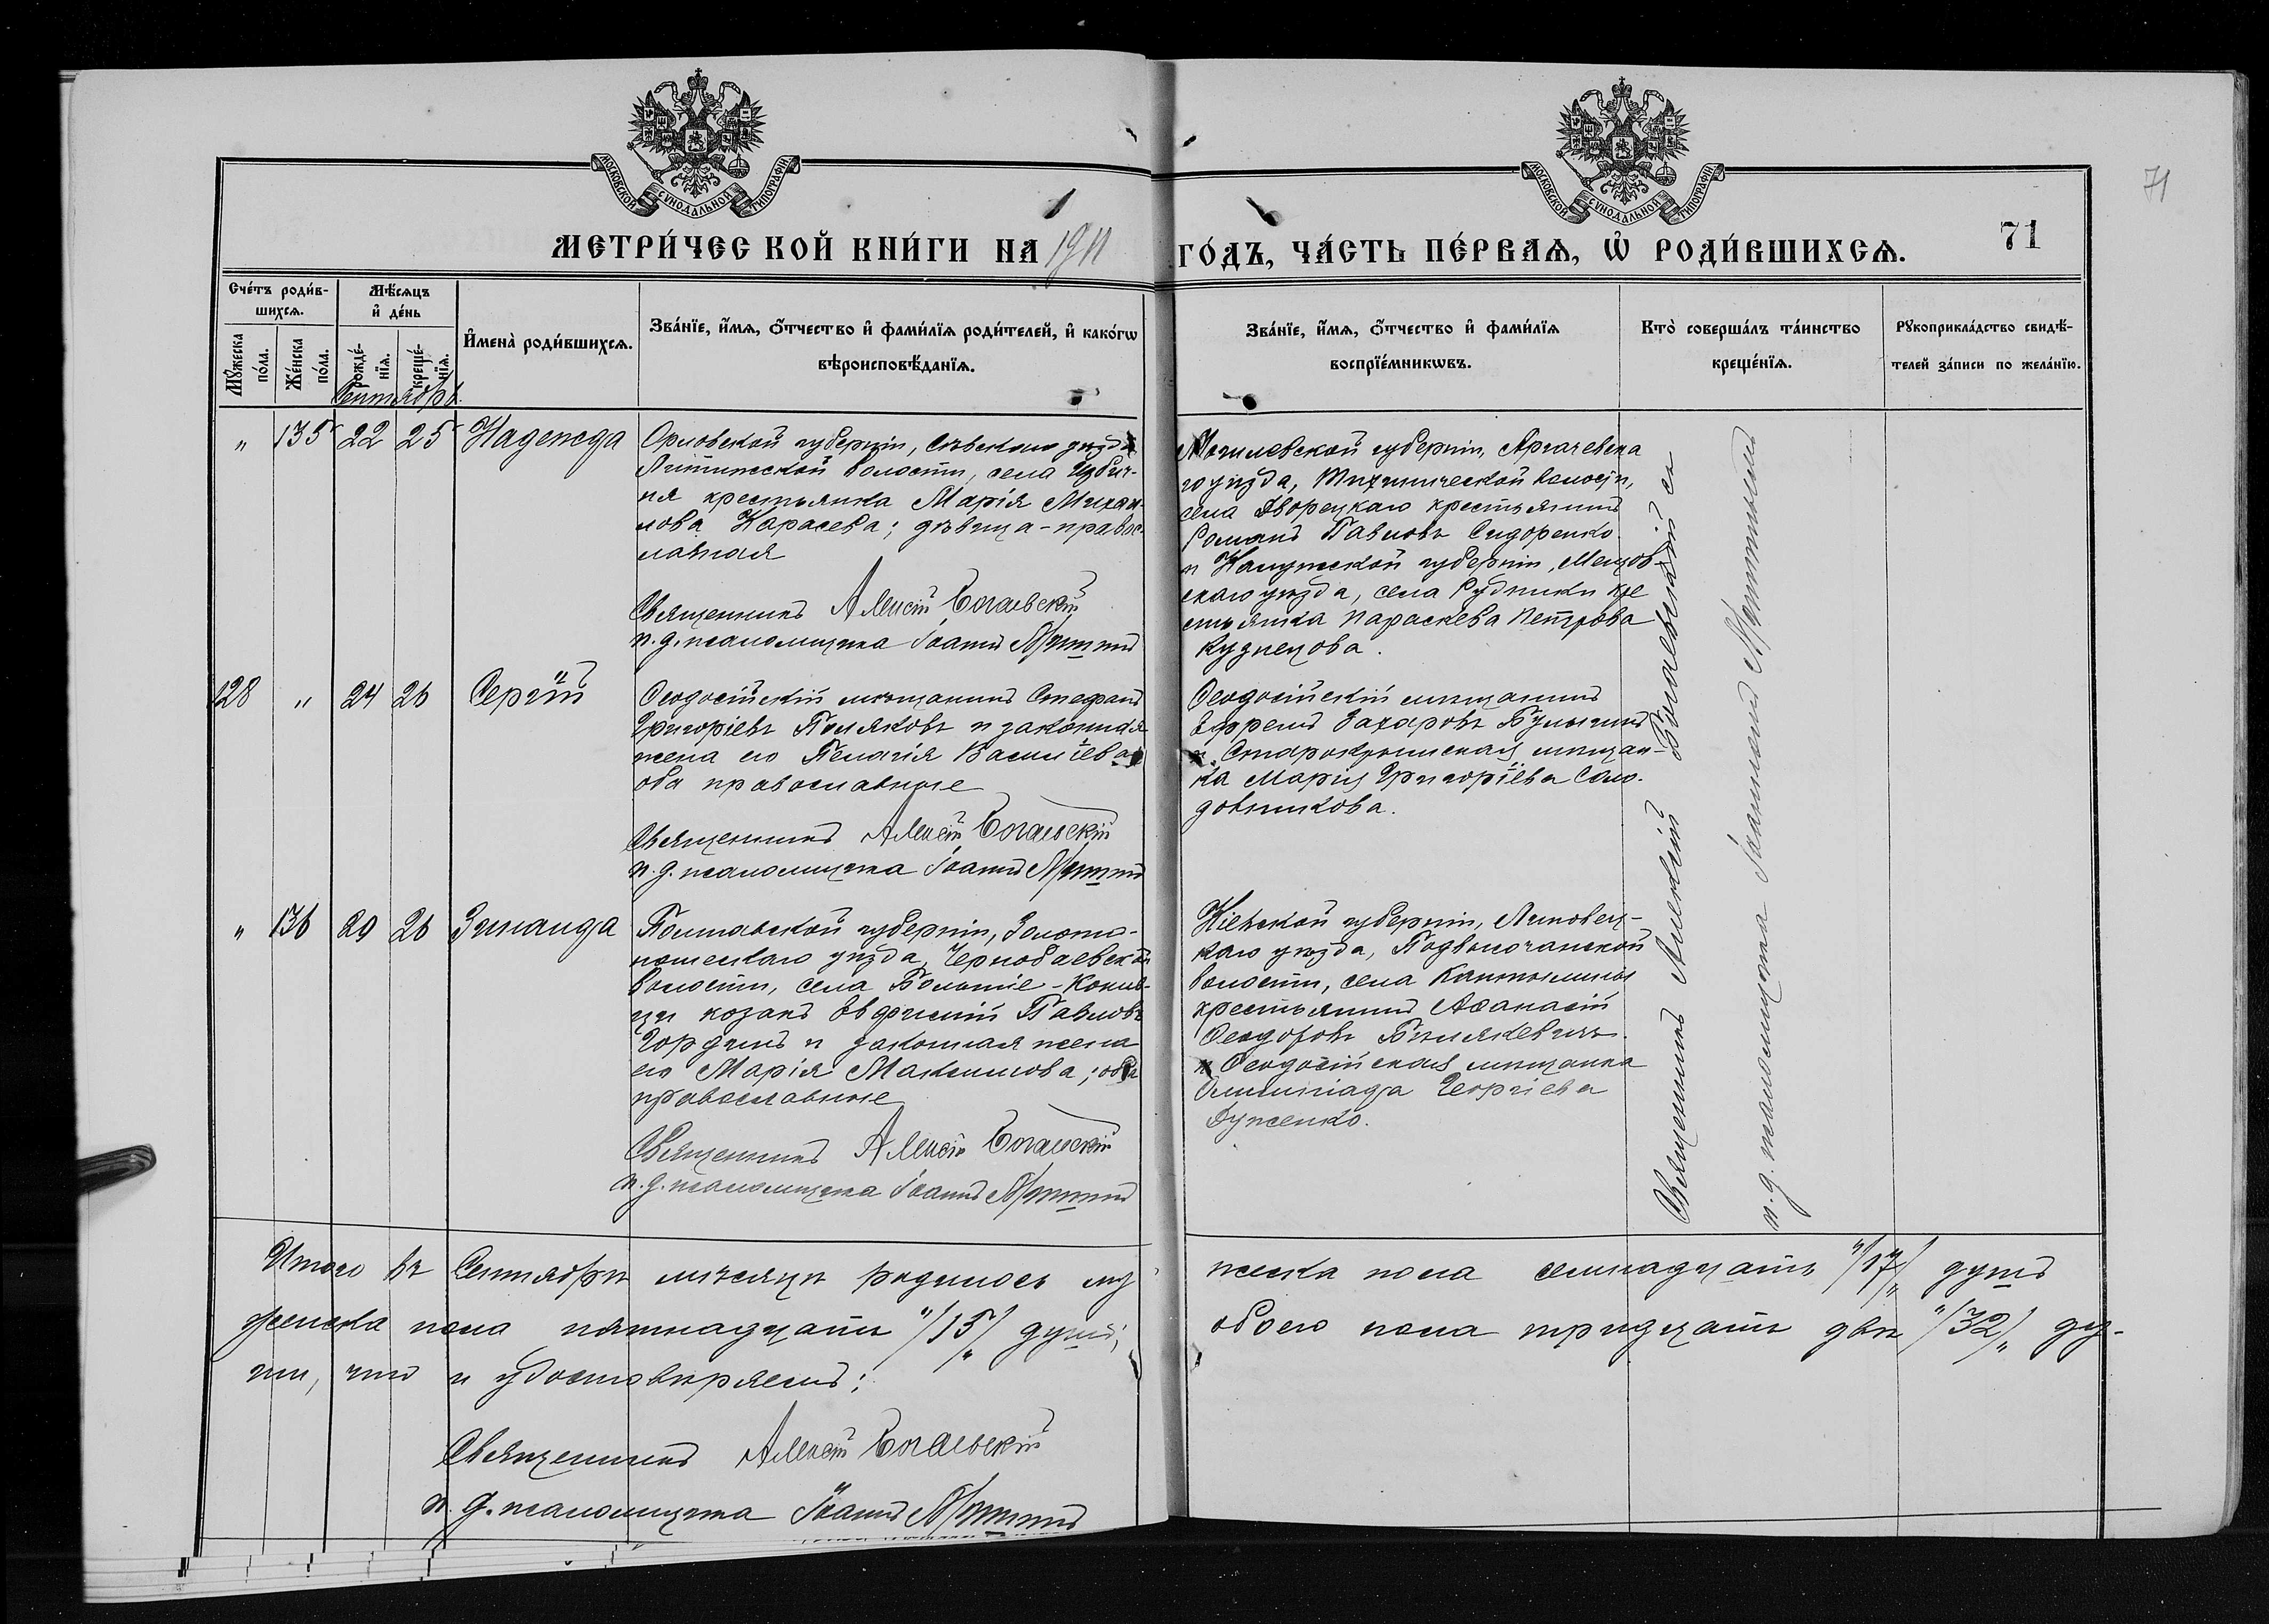 МОСКОВСКОЙ СУНОДАЛЬНОЙ ТИПОГРАФІИ
МОСКОВСКОЙ СУНОДАЛЬНОЙ ТИПОГРАФІИ
71
71
МЕТРИ́ЧЕСКОЙ КНИ́ГИ НА 1911 ГО́ДЪ, ЧА́СТЬ ПЕ́РВАѦ, Ѡ҆ РОДИ́ВШИХСѦ.
Сче́тъ роди́в-
шихсѧ.
Мѣ́сѧцъ
и҆ де́нь
Мꙋ́жеска по́ла.
Же́нска по́ла.
рожде́-
нїѧ.
креще́-
нїѧ.
Сентябрь.
И҆мена̀ роди́вшихсѧ.
Зва́нїе, и҆́мѧ, ѻ҆́тчество и҆ фами́лїѧ роди́телей, и҆ како́гѡ
вѣроисповѣ́данїѧ.
Зва́нїе, и҆́мѧ, ѻ҆́тчество и҆ фами́лїѧ
воспрїе́мникѡвъ.
Кто̀ соверша́лъ та́инство
креще́нїѧ.
Рꙋкоприкла́дство свидѣ́-
телей за́писи по жела́нїю.
" 135 22 25 Надежда
Орловской губерніи, Сѣвскаго уѣзда
волости, села Избич-
ня крестьянка Марія Михаи-
лова Карасева; дѣвица - правос-
лавная
Священникъ Алексій Богаевскій
и. д. псаломщика Іоаннъ
Могилевской губерніи,
го уѣзда, волости,
села Дворецкаго крестьянинъ
Романъ Павловъ Сидоренко
и Калужской губерніи, Мещов-
скаго уѣзда, села Рудники кре
стьянка Параскева Петрова
Кузнецова.
128 " 24 26 Сергій
Ѳеодосійскій мѣщанинъ Стефанъ
Григоріевъ Поляковъ и законная
жена его Пелагія Васильева
оба православные
Священникъ Алексій Богаевскій
и. д. псаломщика Іоаннъ
Ѳеодосійскій мѣщанинъ
Ефремъ Захаровъ Булыгинъ
и Старокрымская мѣщан-
ка Марія Григоріева Сало-
довникова.
" 136 20 26 Зинаида
Полтавской губерніи, Золото-
ношскаго уѣзда, Чернобаевской
волости, села Большіе-Канев-
цы козакъ Евфимій Павловъ
Гордѣнь и законная жена
его Марія Максимова; оба
православные
Священникъ Алексій Богаевскій
и. д. псаломщика Іоаннъ
Кіевской губерніи, Липовец-
каго уѣзда, Подвысочанской
волости, села
крестьянинъ Аѳанасій
Ѳеодоровъ Билякевичъ
и Ѳеодосійская мѣщанка
Олимпіада Георгіева
Дуженко.
Священникъ Алексій Богаевскій съ
и. д. псаломщика Іоанномъ
Итого въ Сентябрѣ мѣсяцѣ родилось му
жеска пола пятнадцать "/15/" душъ;
женска пола семнадцать "/17/" душъ
обоего пола тридцать двѣ "/32/" ду-
ши, что и удостовѣряемъ:
Священникъ Алексій Богаевскій
и. д. псаломщика Іоаннъ